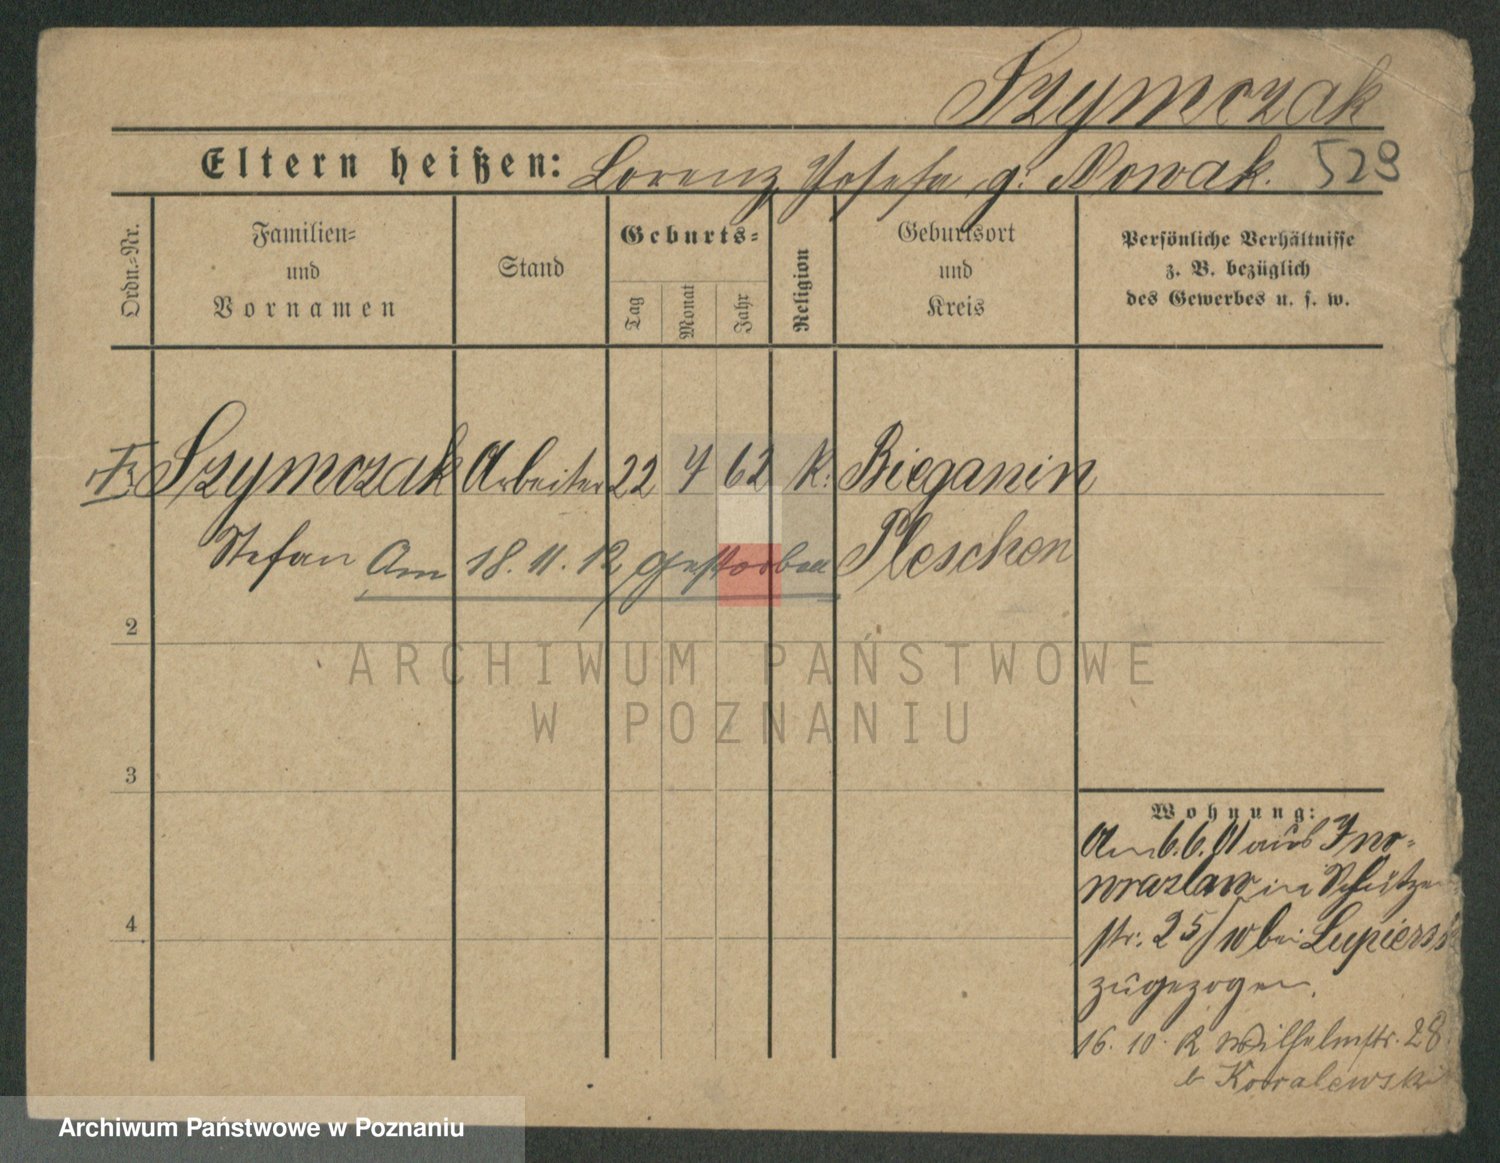 Szymczak
Eltern heißen: Lorenz Josefa g. Nowak. 523
Ordn.-Nr.
Familien-
und
Vornamen
Stand
Geburts-
Tag
Monat
Jahr
Religion
Geburtsort
und
Kreis
Persönliche Verhältnisse
z. B. bezüglich
des Gewerbes u. s. w.
Szymczak Arbeiter 22 7 62 k. Bieganin
Stefan Am 18. 11. 12 gestorben Pleschen
2
ARCHIWUM PAŃSTWOWE
W POZNANIU
3
Wohnung:
Am 6.6.01 aus Ino-
wrazlaw in Schützen
4
str. 25/ bei
zugezogen.
16. 10. Wilhelmstr. 28.
b Kowalewski
Archiwum Państwowe w Poznaniu